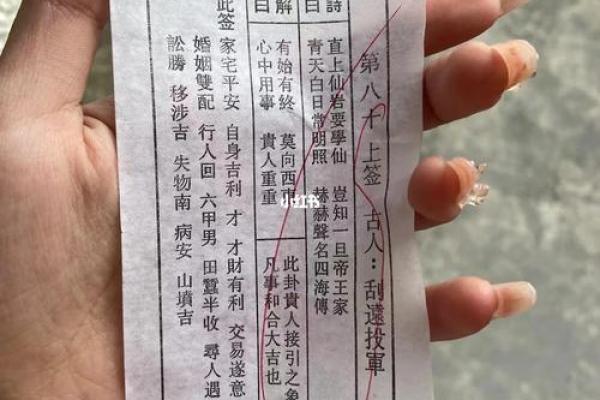 第八十 上签 古人：刮遠投軍
詩
曰
直上仙岩要學仙 豈知一旦帝王家
青天白日常明照 赫赫聲名四海傳
解
曰
有始有終 莫向西東
心中用事 貴人重重
此卦貴人接引之象
凡事和合大吉也
此签
家宅平安 自身吉利 才 才財有利 交易遂意
婚姻雙配 行人回 六甲男 田蠶半收 尋人遇
訟勝 移涉吉 失物南 病安 山墳吉
小红书